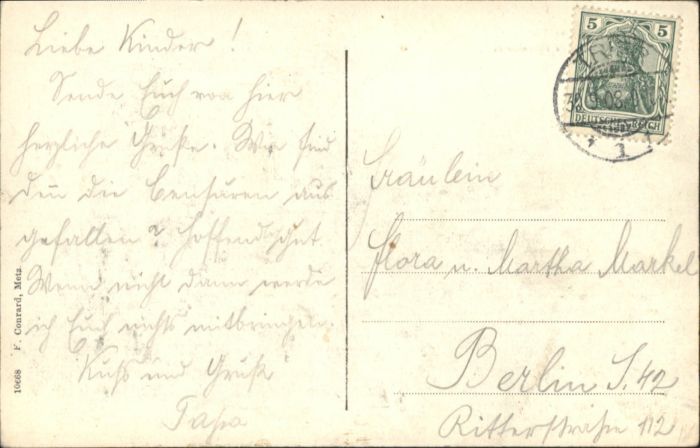 Liebe Kinder!
Sende Euch von hier
herzliche Grüße. Wie sind
denn die Censuren aus
gefallen? Hoffend gut
Wenn nicht dann werde
ich Euch nichts mitbringen.
Kuß und Gruß
Papa
10668 F. Conrard, Metz.
5 5
DEUTSCHES REICH
Fräulein
Flora u. Martha Markel
Berlin S. 42
Ritterstraße 112